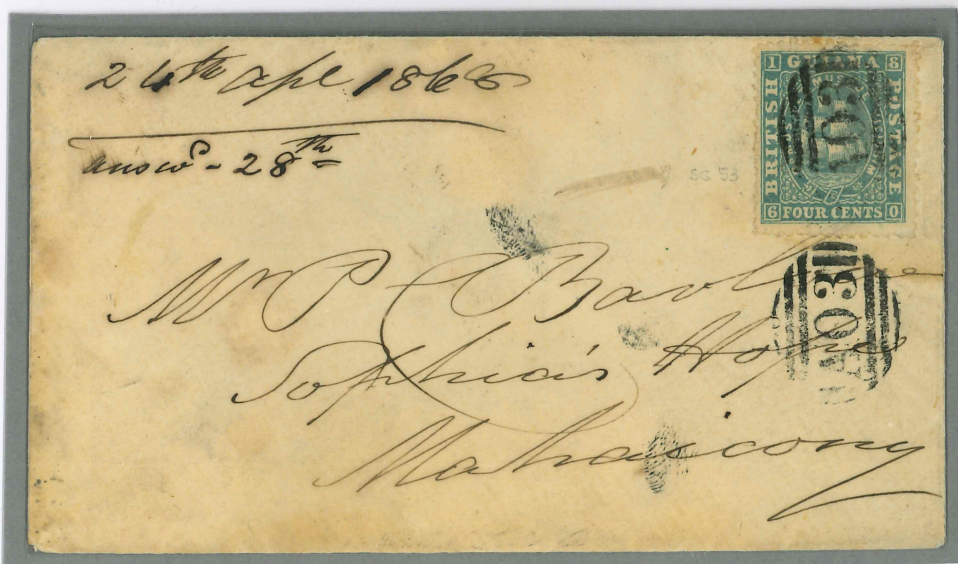 24th apl 1866
answd - 28th
1 GUIANA 8
BRITISH
POSTAGE
6 FOUR CENTS 0
A03
SG 53
A03
Mr P
Sophia's Hope
Mahaicony